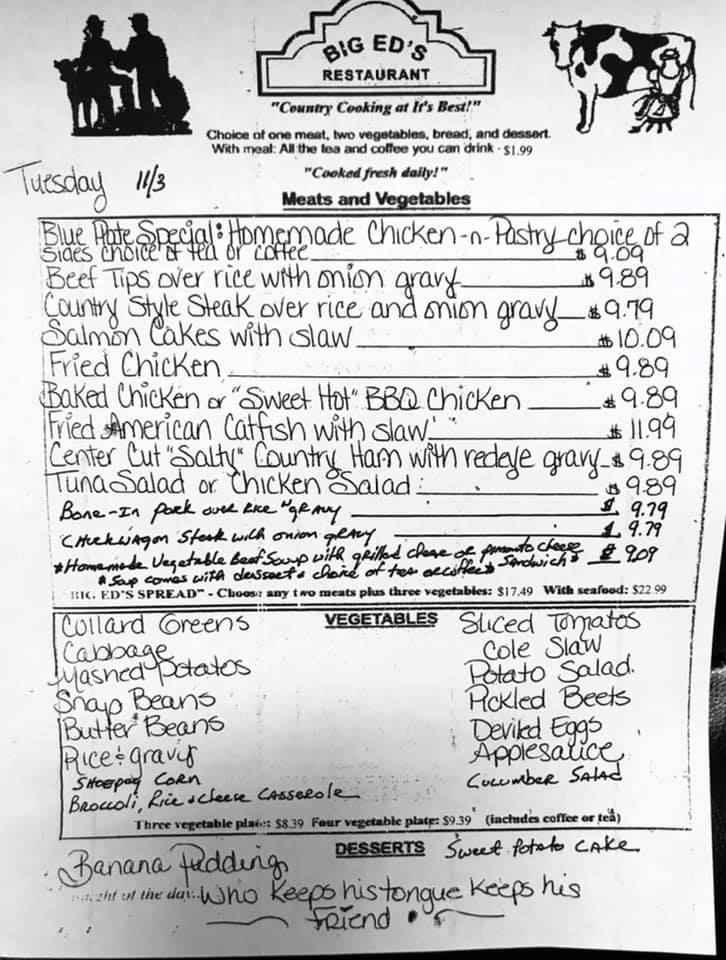 BIG ED'S
RESTAURANT
"Country Cooking at It's Best!"
Choice of one meat, two vegetables, bread, and dessert.
With meal: All the tea and coffee you can drink - $1.99
Tuesday 11/3
"Cooked fresh daily!"
Meats and Vegetables
Blue Plate Special: Homemade Chicken-n-Pastry choice of 2
sides choice of tea or coffee $9.09
Beef Tips over rice with onion gravy $9.89
Country Style Steak over rice and onion gravy $9.79
Salmon Cakes with slaw $10.09
Fried Chicken $9.89
Baked Chicken or "Sweet Hot" BBQ Chicken $9.89
Fried American Catfish with slaw $11.99
Center Cut "Salty" Country Ham with redeye gravy $9.89
Tuna Salad or Chicken Salad $9.89
Bone-In pork over Rice "gravy $9.79
Chuckwagon Steak with onion gravy $9.79
*Homemade Vegetable Beef Soup with grilled cheese or pimento cheese sandwich* $9.09
*Soup comes with dessert & choice of tea or coffee*
BIG ED'S SPREAD" - Choose any two meats plus three vegetables: $17.49 With seafood: $22.99
VEGETABLES
Collard Greens
Cabbage
Mashed Potatos
Snap Beans
Butter Beans
Rice & gravy
Shoepeg Corn
Broccoli, Rice & cheese Casserole
Sliced Tomatos
Cole Slaw
Potato Salad
Pickled Beets
Deviled Eggs
Applesauce
Cucumber Salad
Three vegetable plate: $8.39 Four vegetable plate: $9.39 (includes coffee or tea)
DESSERTS
Banana Pudding
Sweet Potato Cake
of the day.. Who keeps his tongue keeps his
friend